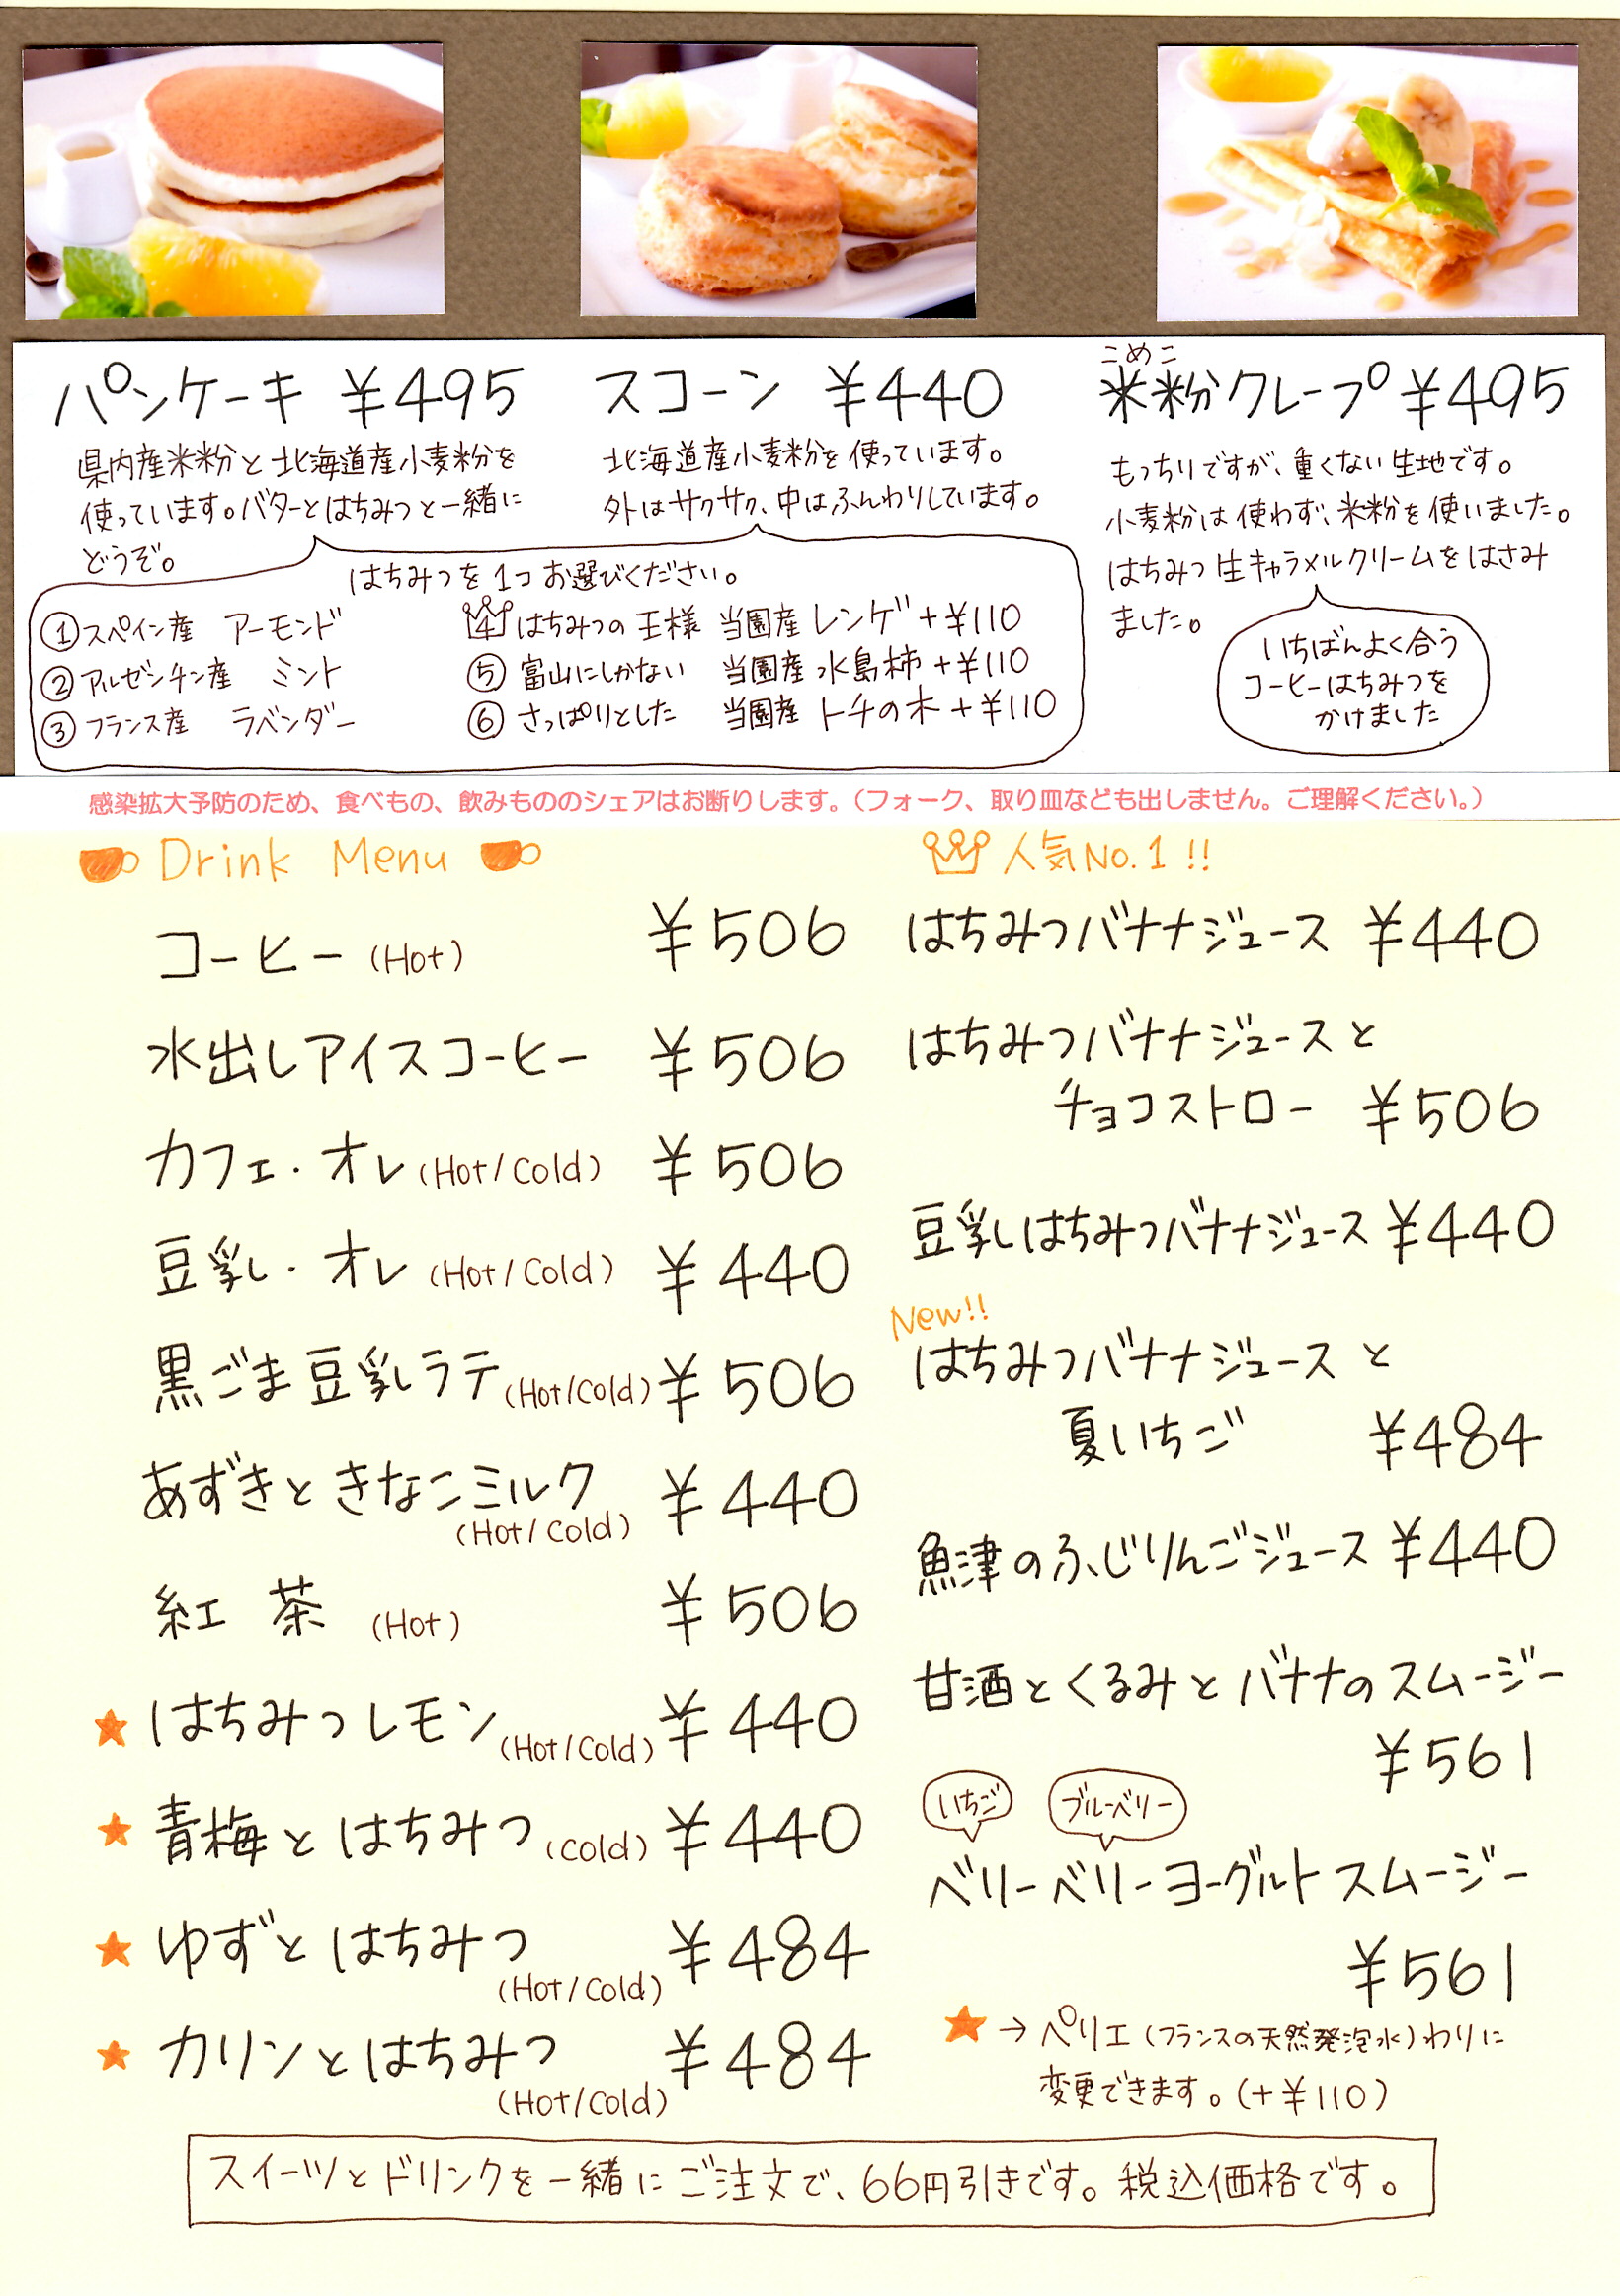 パンケーキ ¥495
県内産米粉と北海道産小麦粉を
使っています。バターとはちみつと一緒に
どうぞ。
スコーン ¥440
北海道産小麦粉を使っています。
外はサクサク、中はふんわりしています。
はちみつを1つお選びください。
①スペイン産 アーモンド
②アルゼンチン産 ミント
③フランス産 ラベンダー
4 はちみつの王様 当園産 レンゲ +¥110
⑤ 富山にしかない 当園産 水島柿 +¥110
⑥ さっぱりとした 当園産 トチの木 +¥110
こめこ
米粉クレープ ¥495
もっちりですが、重くない生地です。
小麦粉は使わず、米粉を使いました。
はちみつ生キャラメルクリームをはさみ
ました。
いちばんよく合う
コーヒーはちみつを
かけました
感染拡大予防のため、食べもの、飲みもののシェアはお断りします。（フォーク、取り皿なども出しません。ご理解ください。）
Drink Menu
コーヒー (Hot) ¥506
水出しアイスコーヒー ¥506
カフェ・オレ (Hot/Cold) ¥506
豆乳・オレ (Hot/Cold) ¥440
黒ごま豆乳ラテ (Hot/Cold) ¥506
あずきときなこミルク ¥440
(Hot/Cold)
紅茶 (Hot) ¥506
★はちみつレモン (Hot/Cold) ¥440
★青梅とはちみつ (Cold) ¥440
★ゆずとはちみつ ¥484
(Hot/Cold)
★カリンとはちみつ ¥484
(Hot/Cold)
人気No.1!!
はちみつバナナジュース ¥440
はちみつバナナジュースと
チョコストロー ¥506
豆乳はちみつバナナジュース ¥440
New!!
はちみつバナナジュースと
夏いちご ¥484
魚津のふじりんごジュース ¥440
甘酒とくるみとバナナのスムージー
¥561
いちご ブルーベリー
ベリーベリーヨーグルトスムージー
¥561
★→ペリエ(フランスの天然発泡水)わりに
変更できます。(+¥110)
スイーツとドリンクを一緒にご注文で、66円引きです。税込価格です。